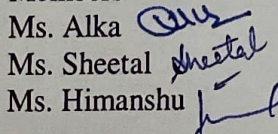 Ms. Alka
Ms. Sheetal Sheetal
Ms. Himanshu